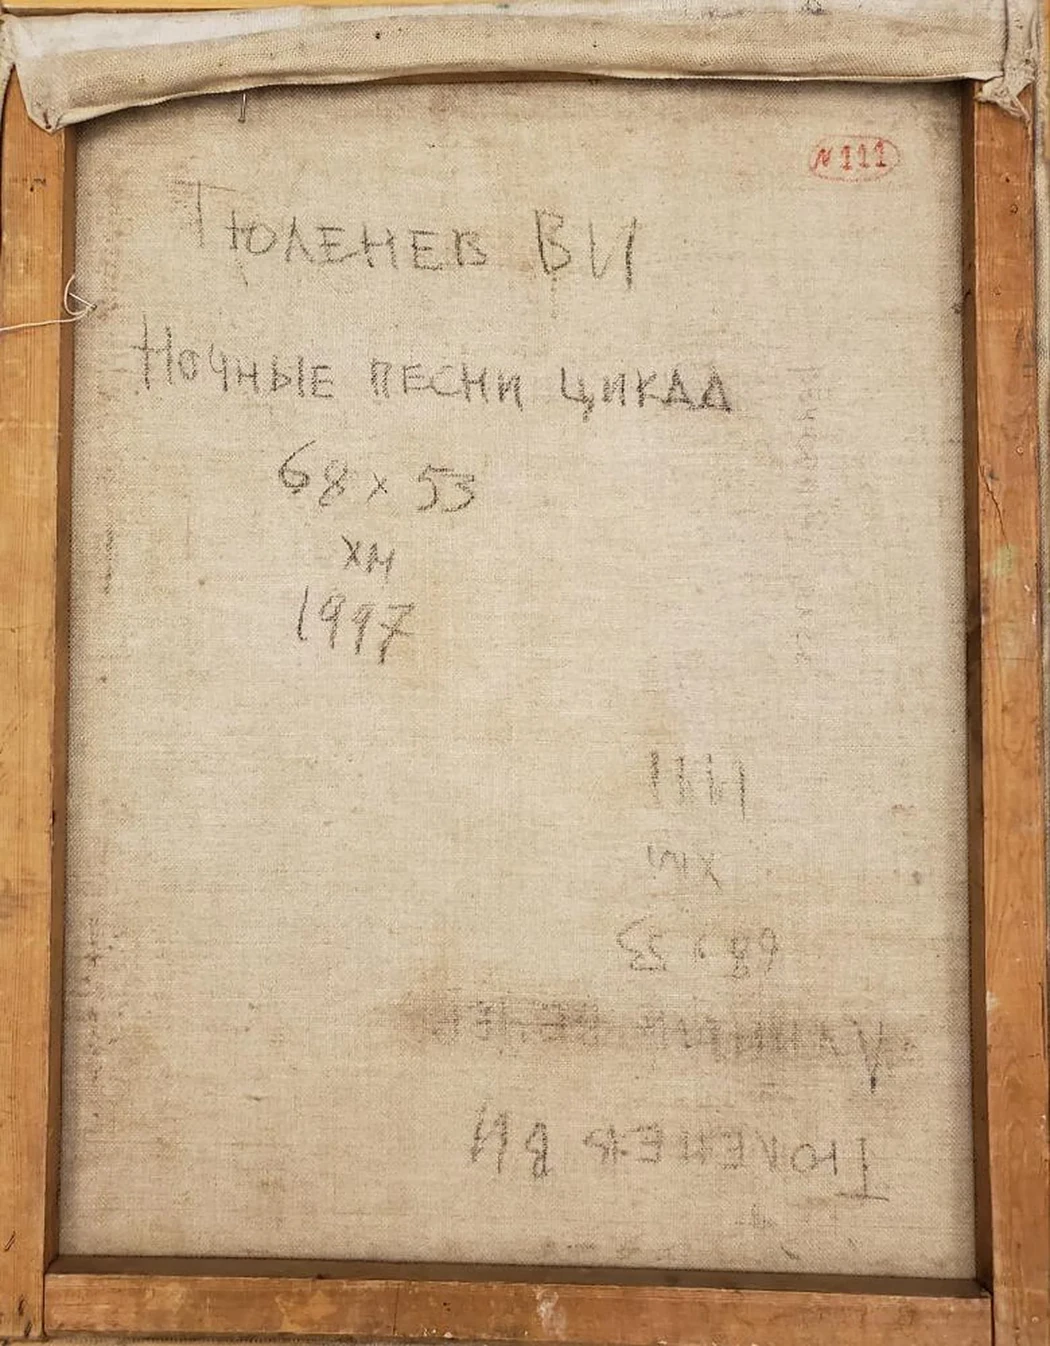 №111
Тюленев ВИ
Ночные песни цикад
68 х 53
хм
1997
Тюленев ВИ
68 х 53
хм